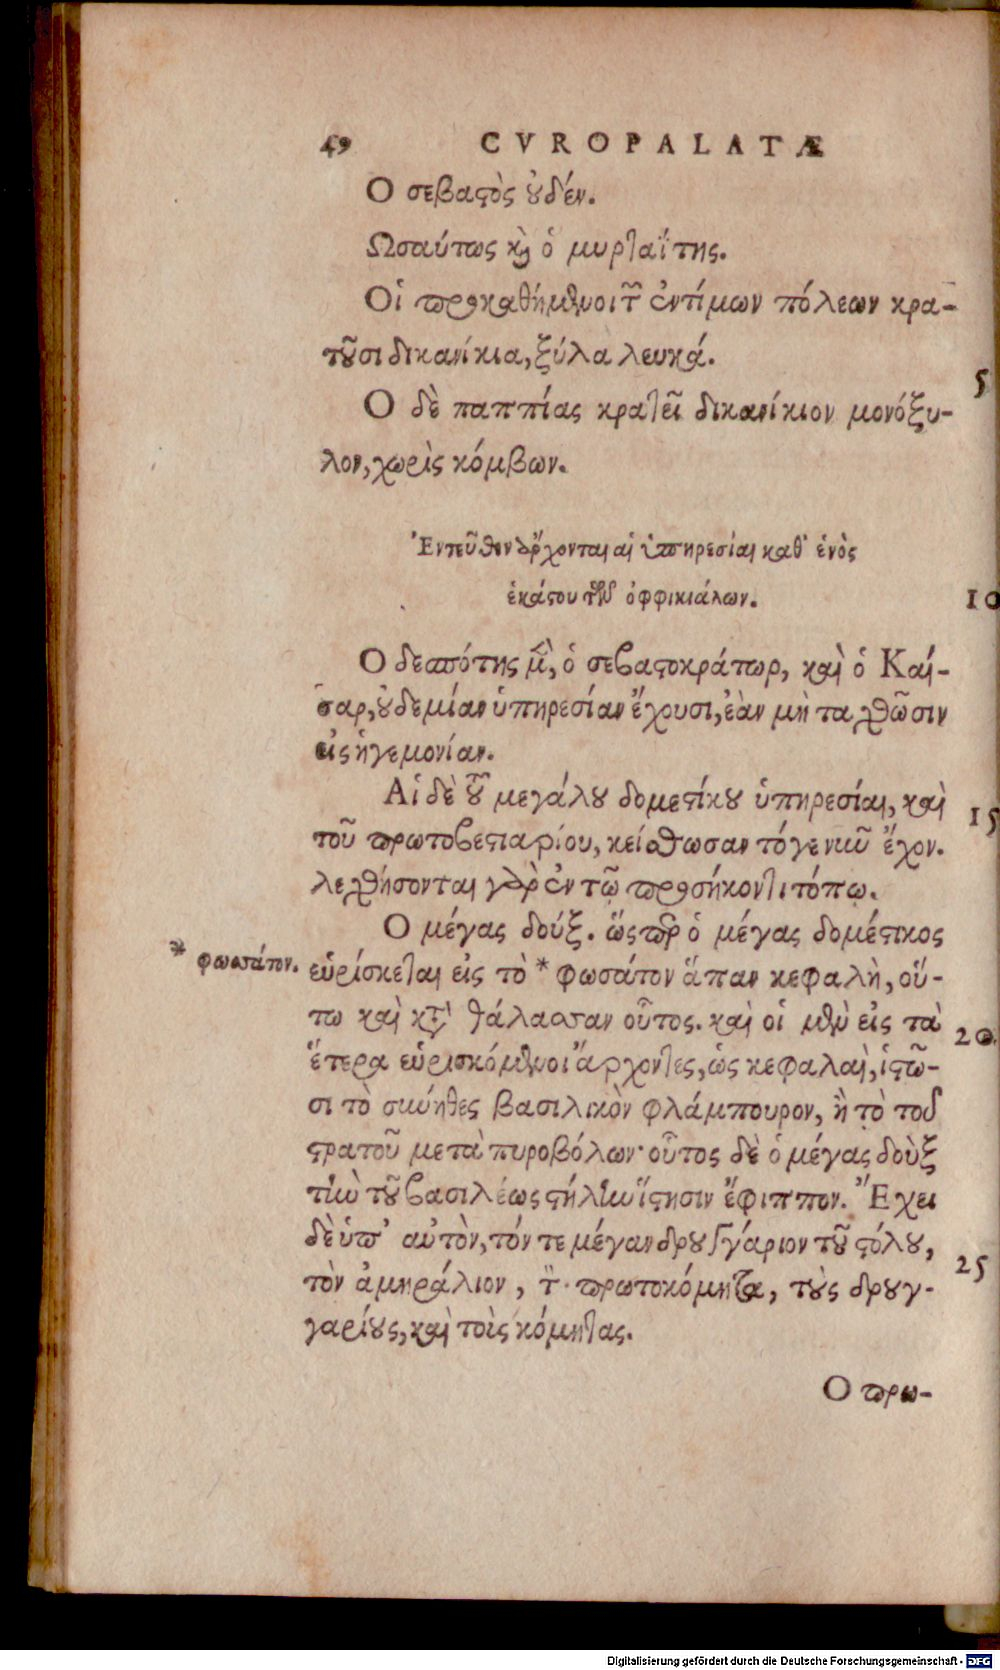 49 CVROPALATÆ
Ο σεβαστὸς οὐδέν.
Ωσαύτως καὶ ὁ μυρταΐτης.
Οἱ προκαθήμενοι τῶν ἐντίμων πόλεων κρα-
τοῦσι δικανίκια, ξύλα λευκά.
5
Ο δὲ παππίας κρατεῖ δικανίκιον μονόξυ-
λον, χωρὶς κόμβων.
Ἐντεῦθεν ἄρχονται αἱ ὑπηρεσίαι καθ' ἑνὸς
ἑκάστου τῶν ὀφφικιάλων.
10
Ο δεσπότης μὲν, ὁ σεβαστοκράτωρ, καὶ ὁ Καί-
σαρ, οὐδεμίαν ὑπηρεσίαν ἔχουσι, ἐὰν μὴ ταχθῶσιν
εἰς ἡγεμονίαν.
Αἱ δὲ τοῦ μεγάλου δομεστίκου ὑπηρεσίαι, καὶ
15
τοῦ πρωτοβεστιαρίου, κείσθωσαν τόγε νῦν ἔχον.
λεχθήσονται γὰρ ἐν τῷ προσήκοντι τόπῳ.
Ο μέγας δούξ. ὥσπερ ὁ μέγας δομέστικος
* φωσσάτον.
εὑρίσκεται εἰς τὸ * φωσάτον ἅπαν κεφαλὴ, οὕ-
τω καὶ κατὰ θάλασσαν οὗτος. καὶ οἱ μὲν εἰς τὰ
20
ἕτερα εὑρισκόμενοι ἄρχοντες, ὡς κεφαλαὶ, ἱστῶ-
σι τὸ σύνηθες βασιλικὸν φλάμπουρον, ἢ τὸ τοῦ
στρατοῦ μετὰ πυροβόλων· οὗτος δὲ ὁ μέγας δοὺξ
τὴν τοῦ βασιλέως στήλην ἵστησιν ἔφιππον. Ἔχει
δὲ ὑπ' αὐτὸν, τόν τε μέγαν δρουγγάριον τοῦ στόλου,
25
τὸν ἀμηράλιον, τὸν πρωτοκόμητα, τοὺς δρουγ-
γαρίους, καὶ τοὺς κόμητας.
Ο πρω-
Digitalisierung gefördert durch die Deutsche Forschungsgemeinschaft - DFG